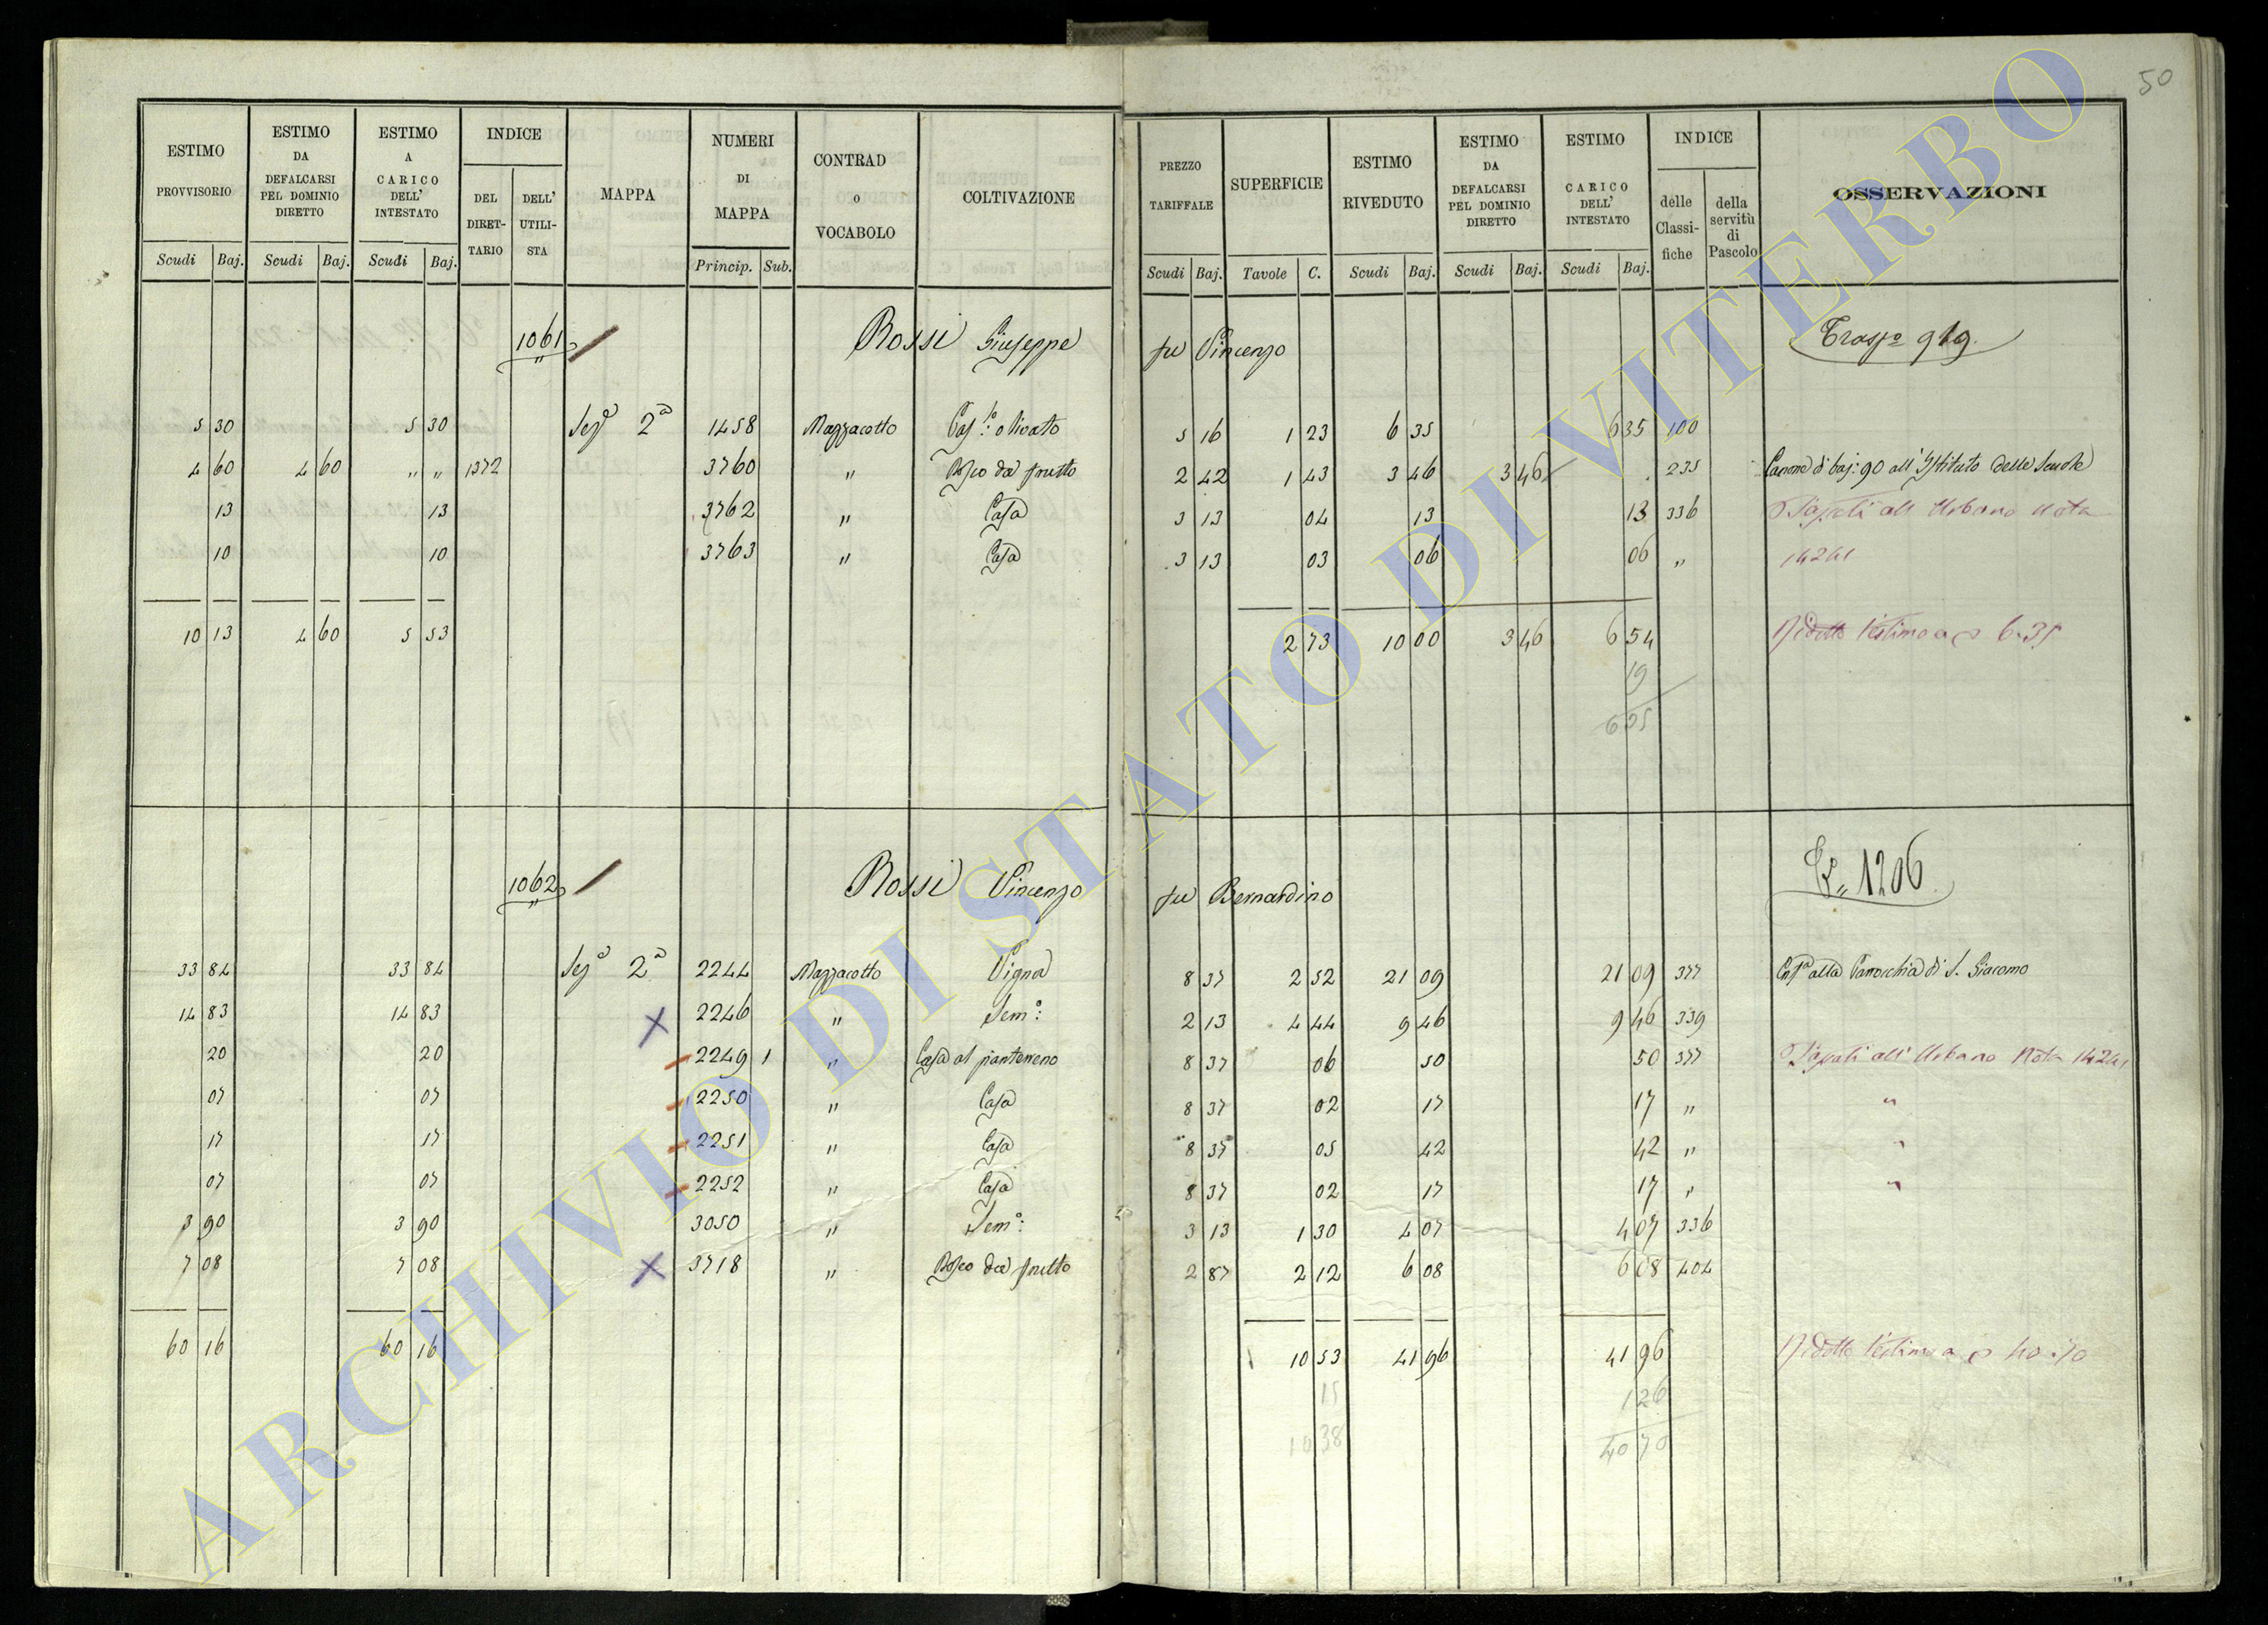 50
ESTIMO PROVVISORIO | ESTIMO DA DEFALCARSI PEL DOMINIO DIRETTO | ESTIMO A CARICO DELL' INTESTATO | INDICE DEL DIRET-TARIO | DELL' UTILI-STA | MAPPA | NUMERI DI MAPPA | CONTRAD o VOCABOLO | COLTIVAZIONE | PREZZO TARIFFALE | SUPERFICIE | ESTIMO RIVEDUTO | ESTIMO DA DEFALCARSI PEL DOMINIO DIRETTO | ESTIMO CARICO DELL' INTESTATO | INDICE delle Classi-fiche | della servitù di Pascolo | OSSERVAZIONI
Scudi Baj. | Scudi Baj. | Scudi Baj. | Princip. Sub. | Scudi Baj. | Tavole C. | Scudi Baj. | Scudi Baj. | Scudi Baj.
1061 Rossi Giuseppe fu Vincenzo 919.
5 30 | 5 30 | Seze 2a | 1458 | Mazzacotto | Casto: olivato | 5 16 | 1 23 | 6 35 | 6 35 | 100
4 60 | 4 60 | " " | 1372 | 3760 | " | Bosco da frutto | 2 42 | 1 43 | 3 46 | 3 46 | 235 | Canone di baj: 90 all' Istituto delle Scuole
13 | 13 | 3762 | " | Casa | 3 13 | 04 | 13 | 13 | 336 | all Urbano Nota
10 | 10 | 3763 | " | Casa | 3 13 | 03 | 06 | 06 | " | 14241
10 13 | 4 60 | 5 53 | 2 73 | 10 00 | 3 46 | 6 54 | Ridotto l'estimo a 6.35
19
6 35
1062 Rossi Vincenzo fu Bernardino 1206
33 84 | 33 84 | Sezе 2a | 2244 | Mazzacotto | Vigna | 8 37 | 2 52 | 21 09 | 21 09 | 377 | alla Parrocchia di S. Giacomo
14 83 | 14 83 | X | 2246 | " | Semo: | 2 13 | 4 44 | 9 46 | 9 46 | 339
20 | 20 | 2249 1 | " | Casa al pianterreno | 8 37 | 06 | 50 | 50 | 377 | all' Urbano Nota 14241
07 | 07 | 2250 | " | Casa | 8 37 | 02 | 17 | 17 | " | "
17 | 17 | 2251 | " | Casa | 8 37 | 05 | 42 | 42 | " | "
07 | 07 | 2252 | " | Casa | 8 37 | 02 | 17 | 17 | " | "
3 90 | 3 90 | 3050 | " | Semo: | 3 13 | 1 30 | 4 07 | 4 07 | 336
7 08 | 7 08 | X | 3718 | " | Bosco da frutto | 2 87 | 2 12 | 6 08 | 6 08 | 404
60 16 | 60 16 | 10 53 | 41 96 | 41 96 | Ridotto l'estimo a 40.70
15 | 1 26
10 38 | 40 70
ARCHIVIO DI STATO DI VITERBO